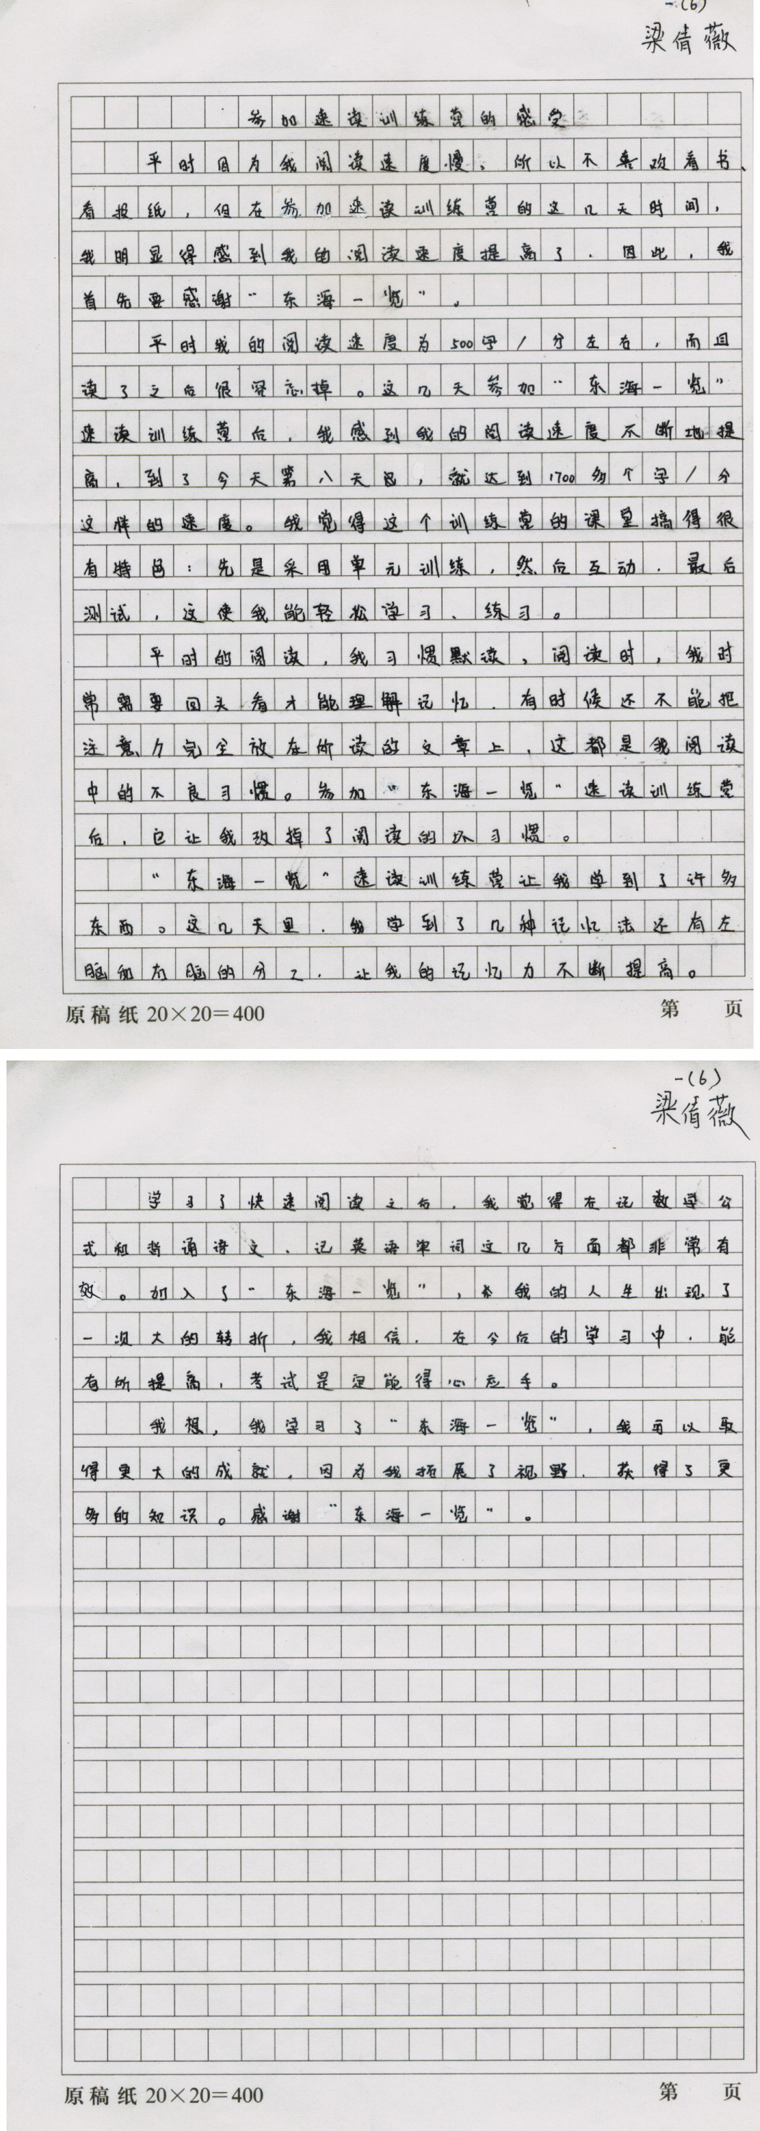 一(6)
梁倩薇
参加速读训练营的感受
平时因为我阅读速度慢，所以不喜欢看书、
看报纸，但在参加速读训练营的这几天时间，
我明显得感到我的阅读速度提高了．因此，我
首先要感谢“东海一览”。
平时我的阅读速度为500字/分左右，而且
读了之后很容忘掉。这几天参加“东海一览”
速读训练营后，我感到我的阅读速度不断地提
高，到了今天第八天，就达到1700多个字/分
这样的速度。我觉得这个训练营的课堂搞得很
有特色：先是采用单元训练，然后互动．最后
测试，这使我能轻松学习、练习。
平时的阅读，我习惯默读，阅读时，我时
常需要回头看才能理解记忆．有时候还不能把
注意力完全放在所读的文章上，这都是我阅读
中的不良习惯。参加“东海一览”速读训练营
后，它让我改掉了阅读的坏习惯。
“东海一览”速读训练营让我学到了许多
东西。这几天里．我学到了几种记忆法还有左
脑和右脑的分工．让我的记忆力不断提高。
原稿纸 20×20=400
第 页
一(6)
梁倩薇
学习了快速阅读之后，我觉得在记数学公
式和背诵语文、记英语单词这几方面都非常有
效。加入了“东海一览”，令我的人生出现了
一次大的转折，我相信．在今后的学习中．能
有所提高，考试是定能得心应手。
我想，我学习了“东海一览”，我可以取
得更大的成就，因为我拓展了视野．获得了更
多的知识。感谢“东海一览”。
原稿纸 20×20=400
第 页